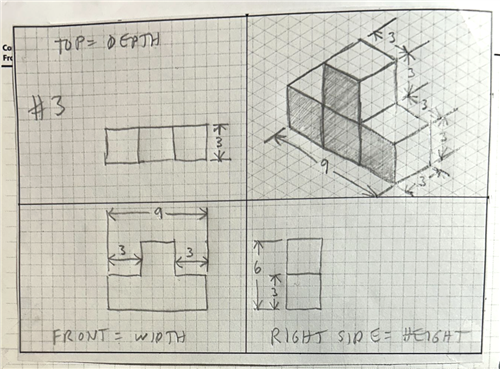 Co
Fro
TOP = DEPTH
#3
3
3
3
3
3
3
9
9
3
3
6
3
FRONT = WIDTH
RIGHT SIDE = HEIGHT